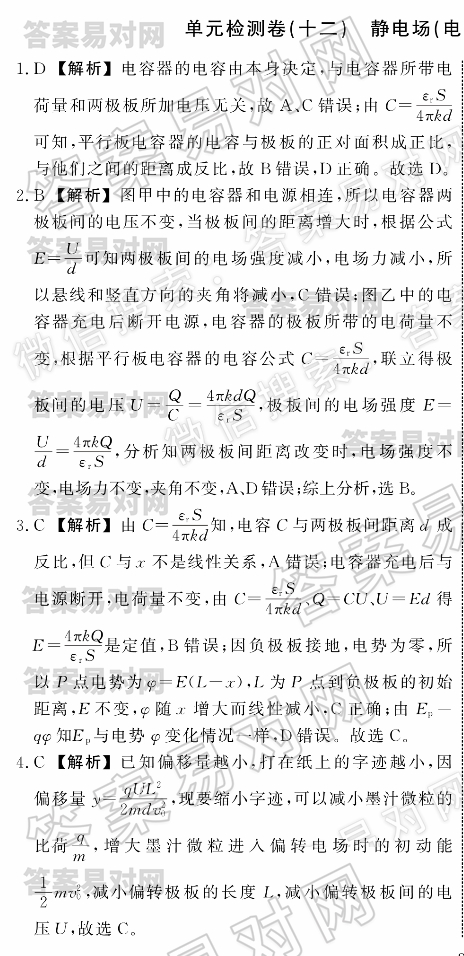 单元检测卷(十二) 静电场(电
1. D 【解析】电容器的电容由本身决定,与电容器所带电
荷量和两极板所加电压无关,故 A、C 错误;由 C=εᵣS/4πkd
可知,平行板电容器的电容与极板的正对面积成正比,
与他们之间的距离成反比,故 B 错误,D 正确。故选 D。
2. B 【解析】图甲中的电容器和电源相连,所以电容器两
极板间的电压不变,当极板间的距离增大时,根据公式
E=U/d可知两极板间的电场强度减小,电场力减小,所
以悬线和竖直方向的夹角将减小,C 错误;图乙中的电
容器充电后断开电源,电容器的极板所带的电荷量不
变,根据平行板电容器的电容公式 C=εᵣS/4πkd,联立得极
板间的电压 U=Q/C=4πkdQ/εᵣS,极板间的电场强度 E=
U/d=4πkQ/εᵣS,分析知两极板间距离改变时,电场强度不
变,电场力不变,夹角不变,A、D 错误;综上分析,选 B。
3. C 【解析】由 C=εᵣS/4πkd知,电容 C 与两极板间距离 d 成
反比,但 C 与 x 不是线性关系,A 错误;电容器充电后与
电源断开,电荷量不变,由 C=εᵣS/4πkd、Q=CU、U=Ed 得
E=4πkQ/εᵣS是定值,B 错误;因负极板接地,电势为零,所
以 P 点电势为 φ=E(L-x),L 为 P 点到负极板的初始
距离,E 不变,φ 随 x 增大而线性减小,C 正确;由 Eₚ=
qφ 知Eₚ与电势 φ 变化情况一样,D 错误。故选 C。
4. C 【解析】已知偏移量越小,打在纸上的字迹越小,因
偏移量 y=qUL²/2mdv₀²,现要缩小字迹,可以减小墨汁微粒的
比荷q/m,增大墨汁微粒进入偏转电场时的初动能
1/2mv₀²,减小偏转极板的长度 L,减小偏转极板间的电
压 U,故选 C。